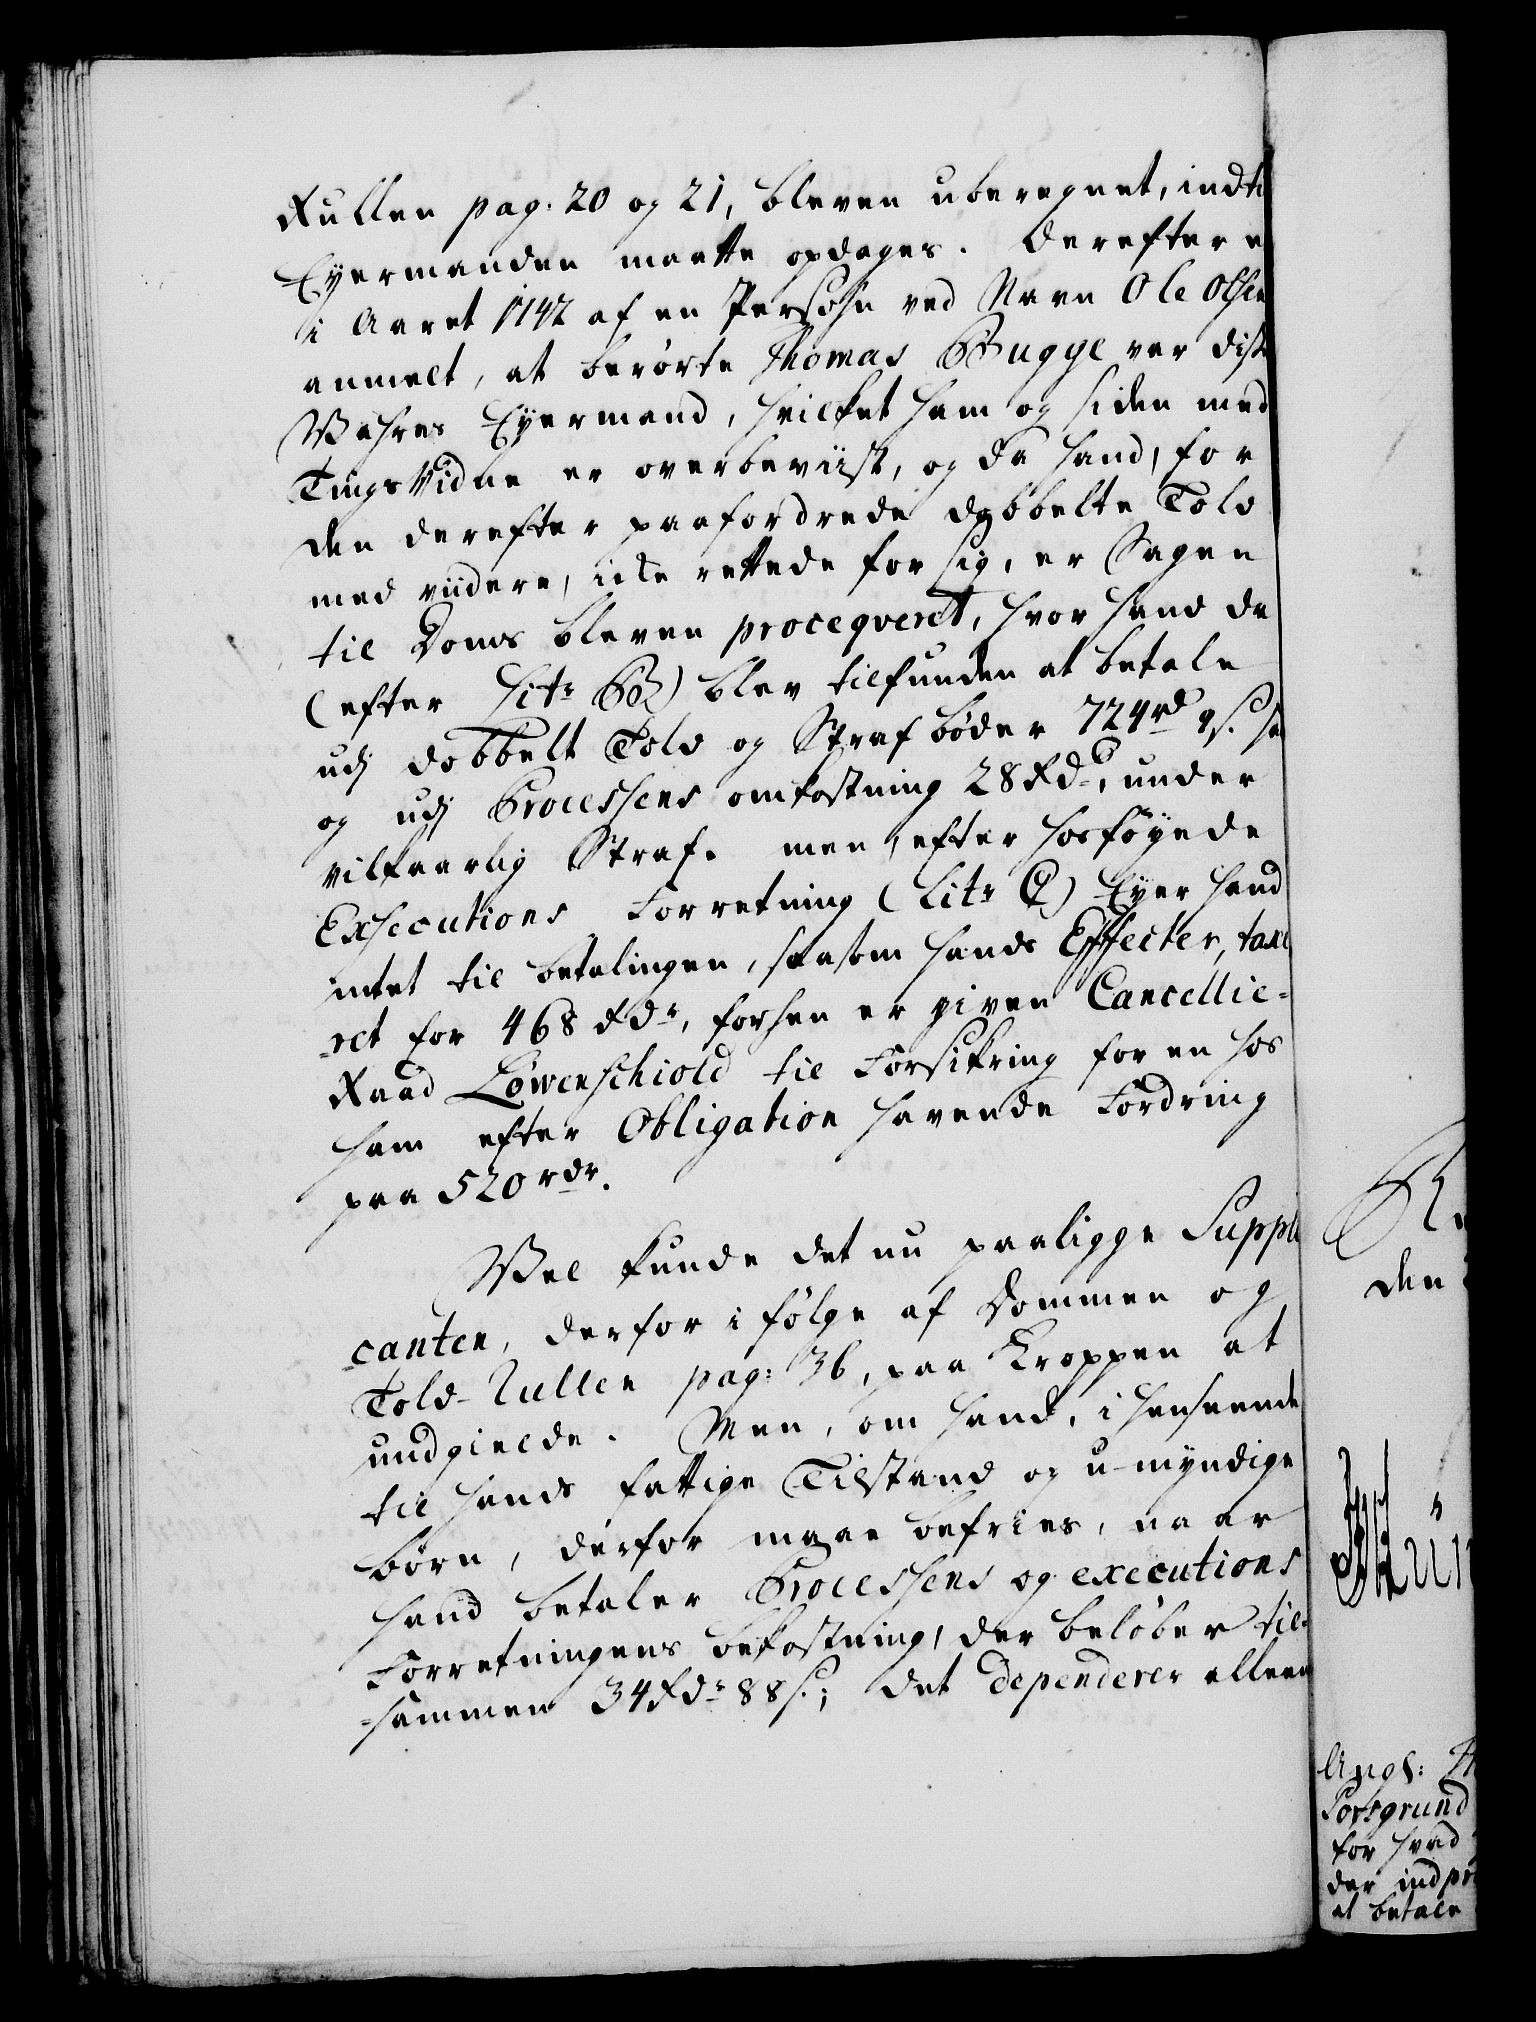 Rullen pag. 20 og 21, bleven uberegnet, indti
Eyermanden maatte opdages. Derefter e
i Aaret 1742 af en Persohn ved Navn Ole Olsen
anmelt, at berørte Thomas Bugge var disse
Wahres Eyermand, hvilket ham og siden med
Tings Vidne er overbeviist, og da hand, for
den derefter paafordrede dobbelte Told
med viidere, icke rettede for sig, er Sagen
til Doms bleven proceqveret, hvor hand da
(efter Litr B) blev tilfunden at betale
udj dobbelt Told og Straf bøder 724 rd
og udj Processens omkostning 28 Rdr, under
vilkaarlig Straf. men, efter hosføyede
Executions Forretning (Litr C) Eyer hand
intet til betalingen, saasom hands Effecter, taxe
-ret for 468 Rdr, forhen er given Cancellie-
Raad Løwenschiold til Forsikring for en hos
ham efter Obligation havende Fordring
paa 520 rdr.
Wel kunde det nu paaligge Suppli
-canten, derfor i følge af Dommen og
Told-Rullen pag: 36, paa Kroppen at
undgielde. Men, om hand, i henseende
til hands fattige Tilstand og u-myndige
børn, derfor maae befries, naar
hand betaler Processens og executions
Forretningens bekostning, der beløber til-
-sammen 34 Rdr 88 s.; det dependerer alleen
den
Angl:
Porsgrund
for hvad
der indpr
at betale